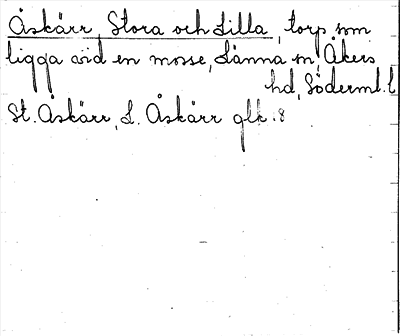 Åskärr, Stora och Lilla, torp som
ligga vid en mosse, Länna sn, Åkers
hd, Söderml. l
St. Åskärr, L. Åskärr glk. 8